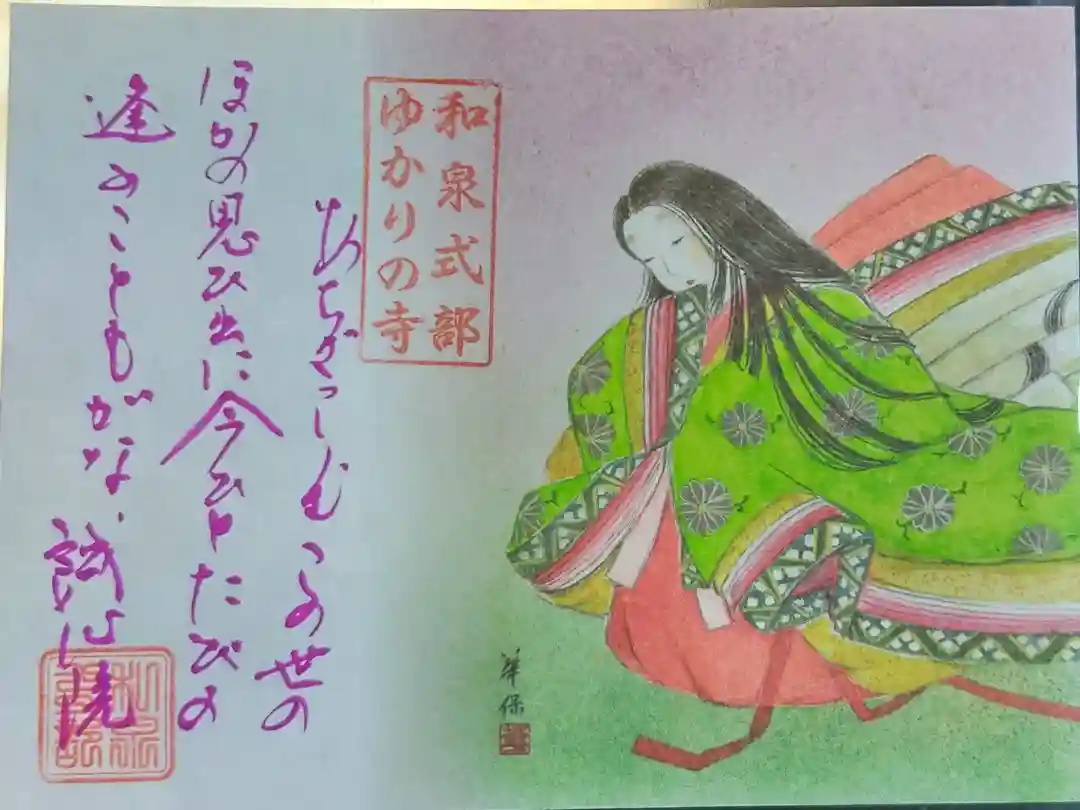 和泉式部
ゆかりの寺
あらざらむこの世の
ほかの思ひ出に今ひとたびの
逢ふこともがな、誠心院